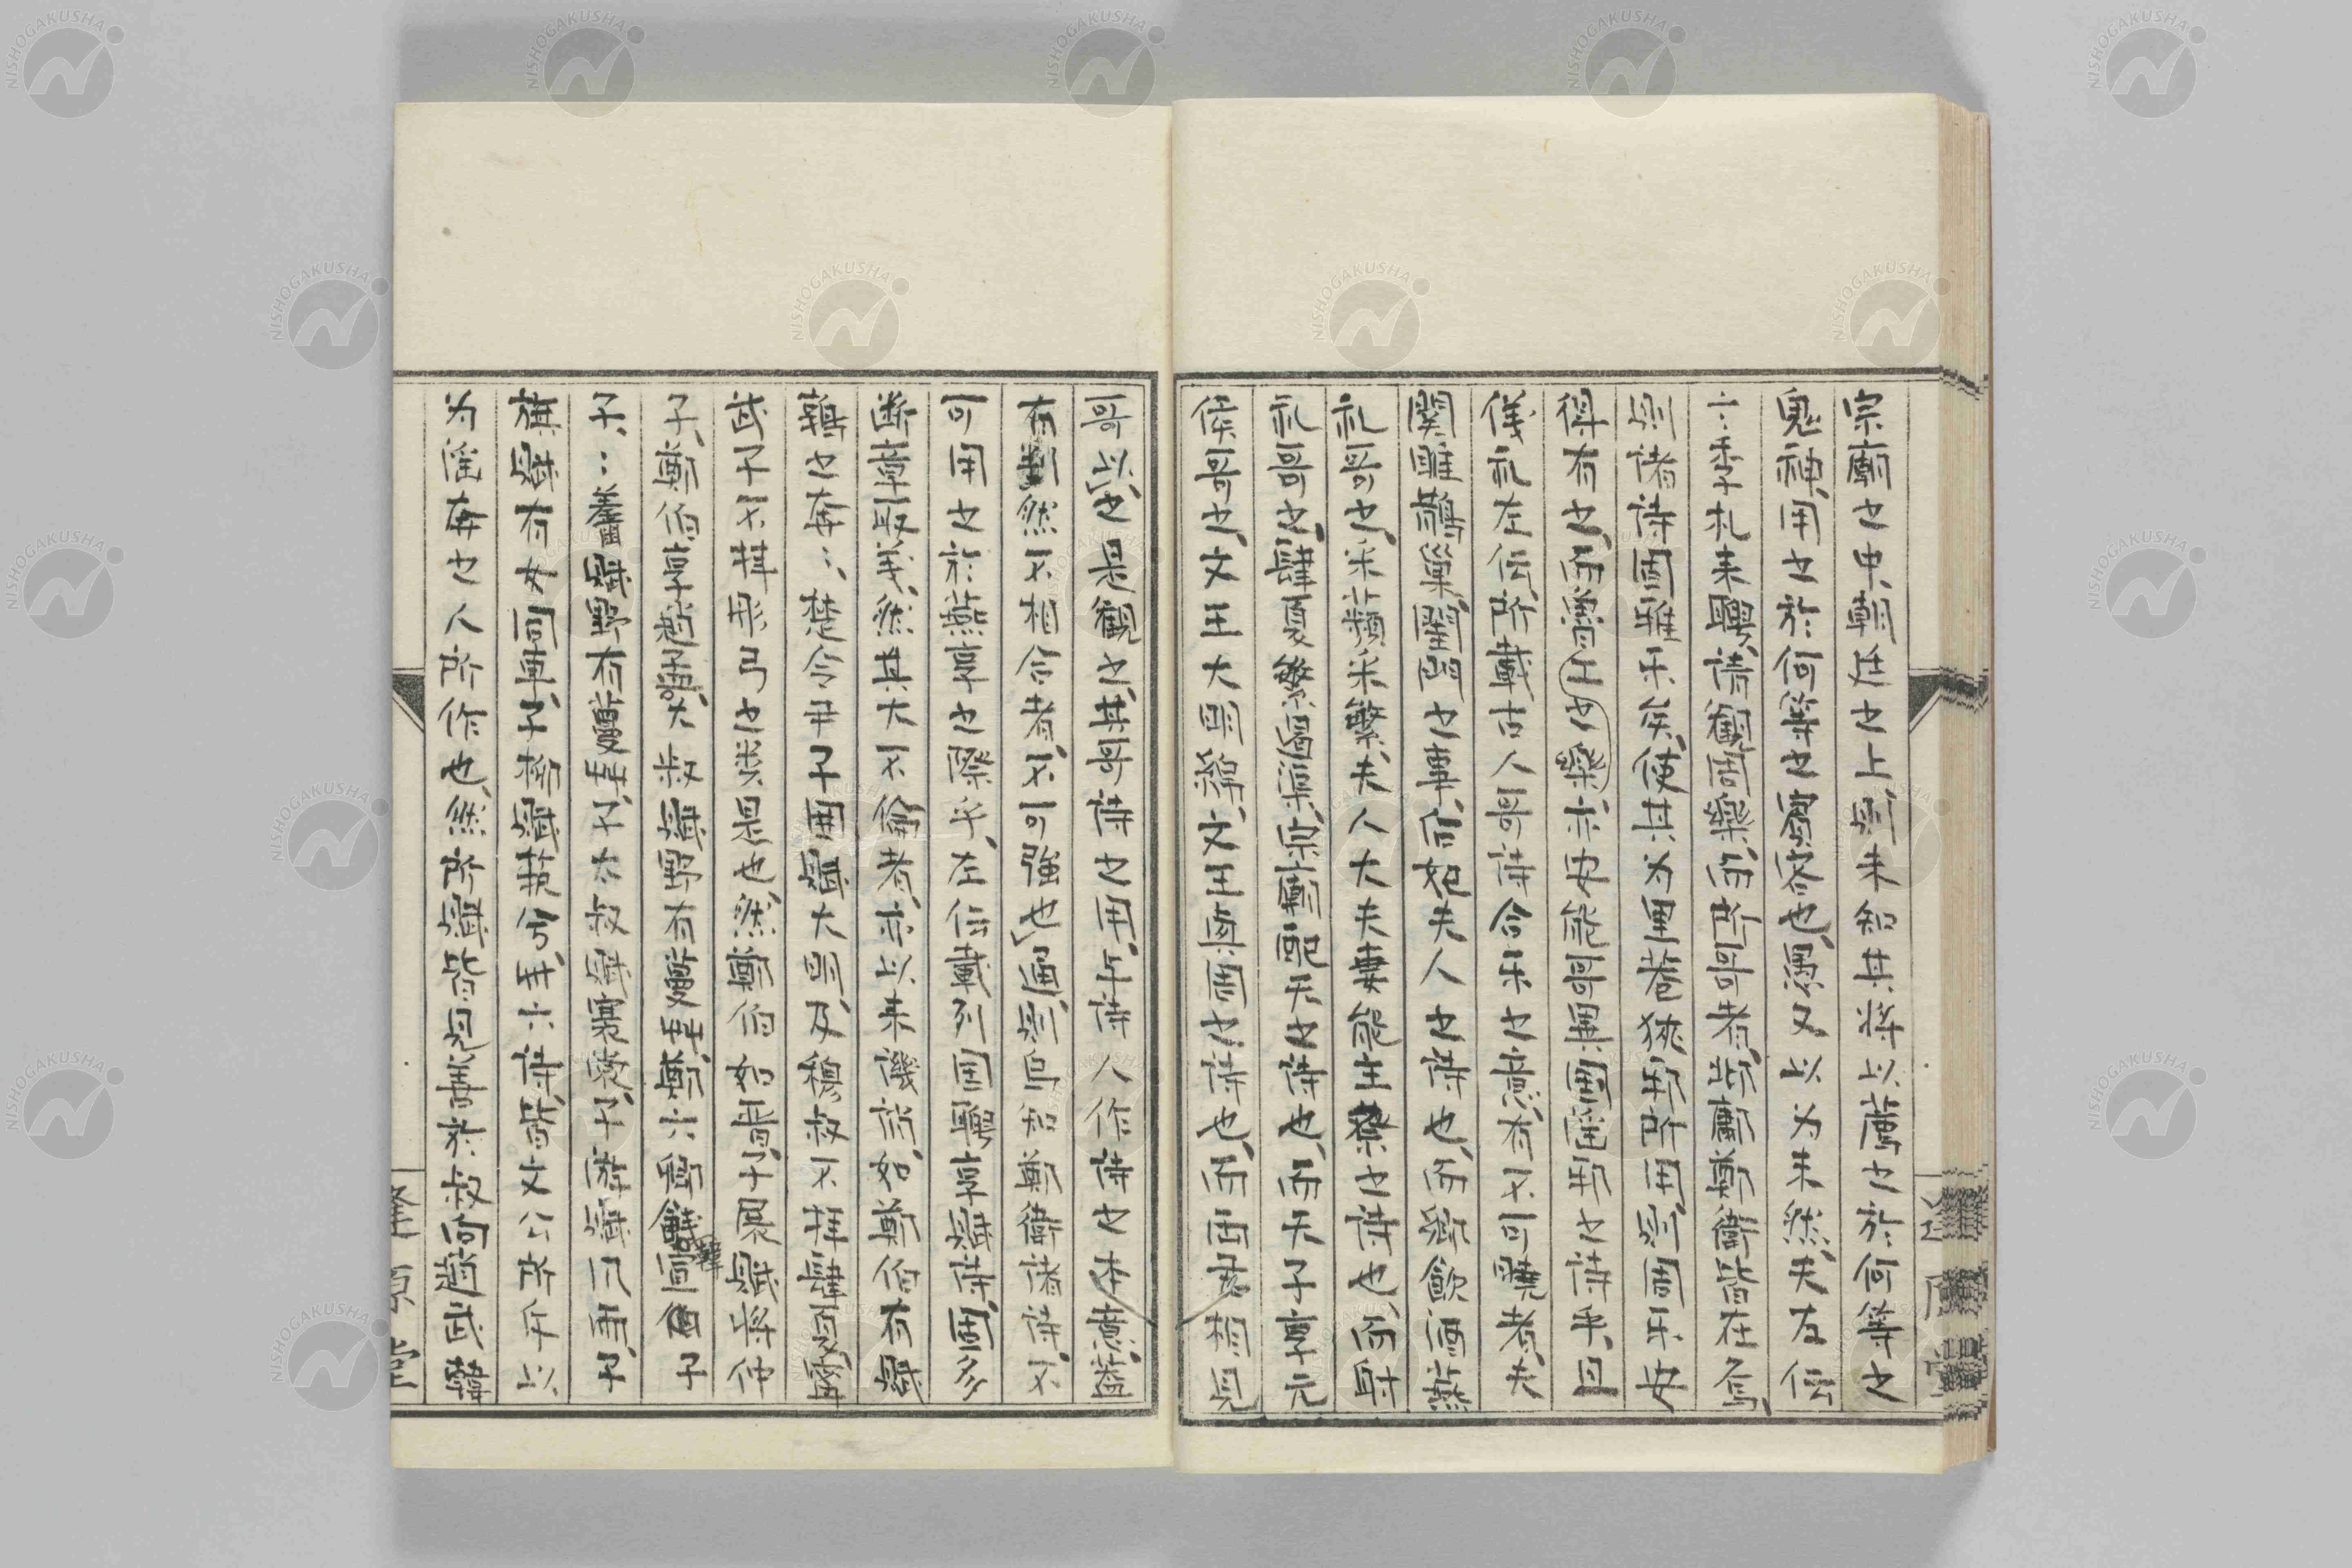 宗廟之中朝廷之上、則未知其将以薦之於何等之
鬼神、用之於何等之賓客也、愚又以为未然、夫左伝
六季札来聘、請観周樂、而所哥者、邶鄘鄭衛皆在焉、
則諸詩固雅乐矣、使其为里巷狭邪所用、則周乐安
得有之、而魯之樂亦安能哥異国淫邪之詩乎、且
儀礼左伝所載古人哥詩合乐之意、有不可曉者、夫
関雎鵲巣、閨門之事、后妃夫人之詩也、而郷飲酒燕
礼哥之、采蘋采蘩、夫人大夫妻能主祭之詩也、而射
礼哥之、肆夏繁遏渠、宗廟配天之詩也、而天子享元
侯哥之、文王大明緜、文王興周之詩也、而両君相見
哥以之、是観之、其哥詩之用、与詩人作詩之本意、蓋
有判然不相合者、不可強也、通則烏知鄭衛諸詩、不
可用之於燕享之際乎、左伝載列国聘享賦詩、固多
断章取義、然其大不倫者、亦以来譏誚、如鄭伯有賦
鶉之奔〻、楚令尹子囲賦大明、及穆叔不拝肆夏、甯
武子不拝彤弓之类是也、然鄭伯如晋、子展賦将仲
子、鄭伯享趙孟、大叔賦野有蔓草、鄭六卿餞韓宣子
子〻齹賦野有蔓草、子大叔賦褰裳、子游賦风雨、子
旗賦有女同車、子柳賦蘀兮、此六詩、皆文公所斥以
为淫奔之人所作也、然所賦皆見善於叔向趙武韓